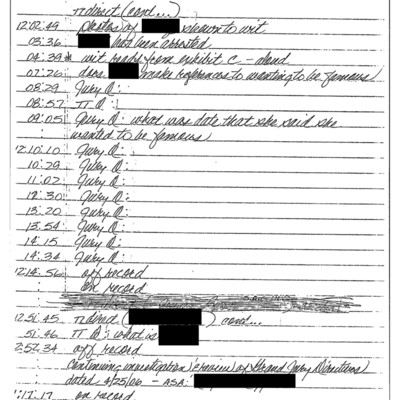 π direct (cond...)
12:02:49 photos of shown to wit
03:36 has been arrested
04:39* wit reads from exhibit C - aloud
07:26 does make references to wanting to be famous
08:29 Jury Q:
08:57 π Q:
09:05 Jury Q: what was date that she said she
wanted to be famous
12:10:10 Jury Q:
10:29 Jury Q:
11:02 Jury Q:
12:30 Jury Q:
13:20 Jury Q:
13:54 Jury Q:
14:15 Jury Q:
14:34 Jury Q:
12:14:56 off record
on record
12:51:45 π direct ( ) cond...
51:46 π Q: what is
2:52:34 off record
Continuing investigation (review of Grand Jury Directives)
dated 4/25/06 - ASA:
:11:17 on record